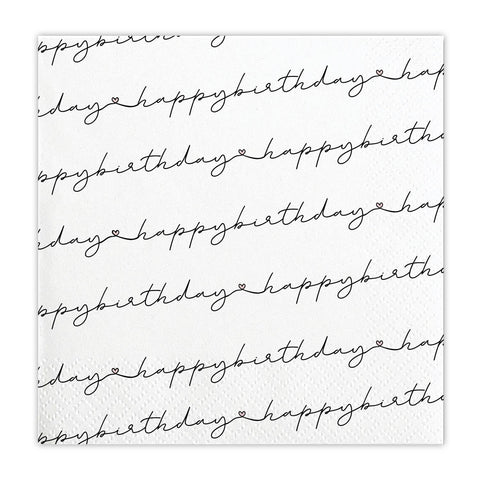 ppybirthday
day happybirthday hap
ppybirthday happybirth
day happybirthday hap
ppybirthday happybirth
day happybirthday hap
ppybirthday happybirth